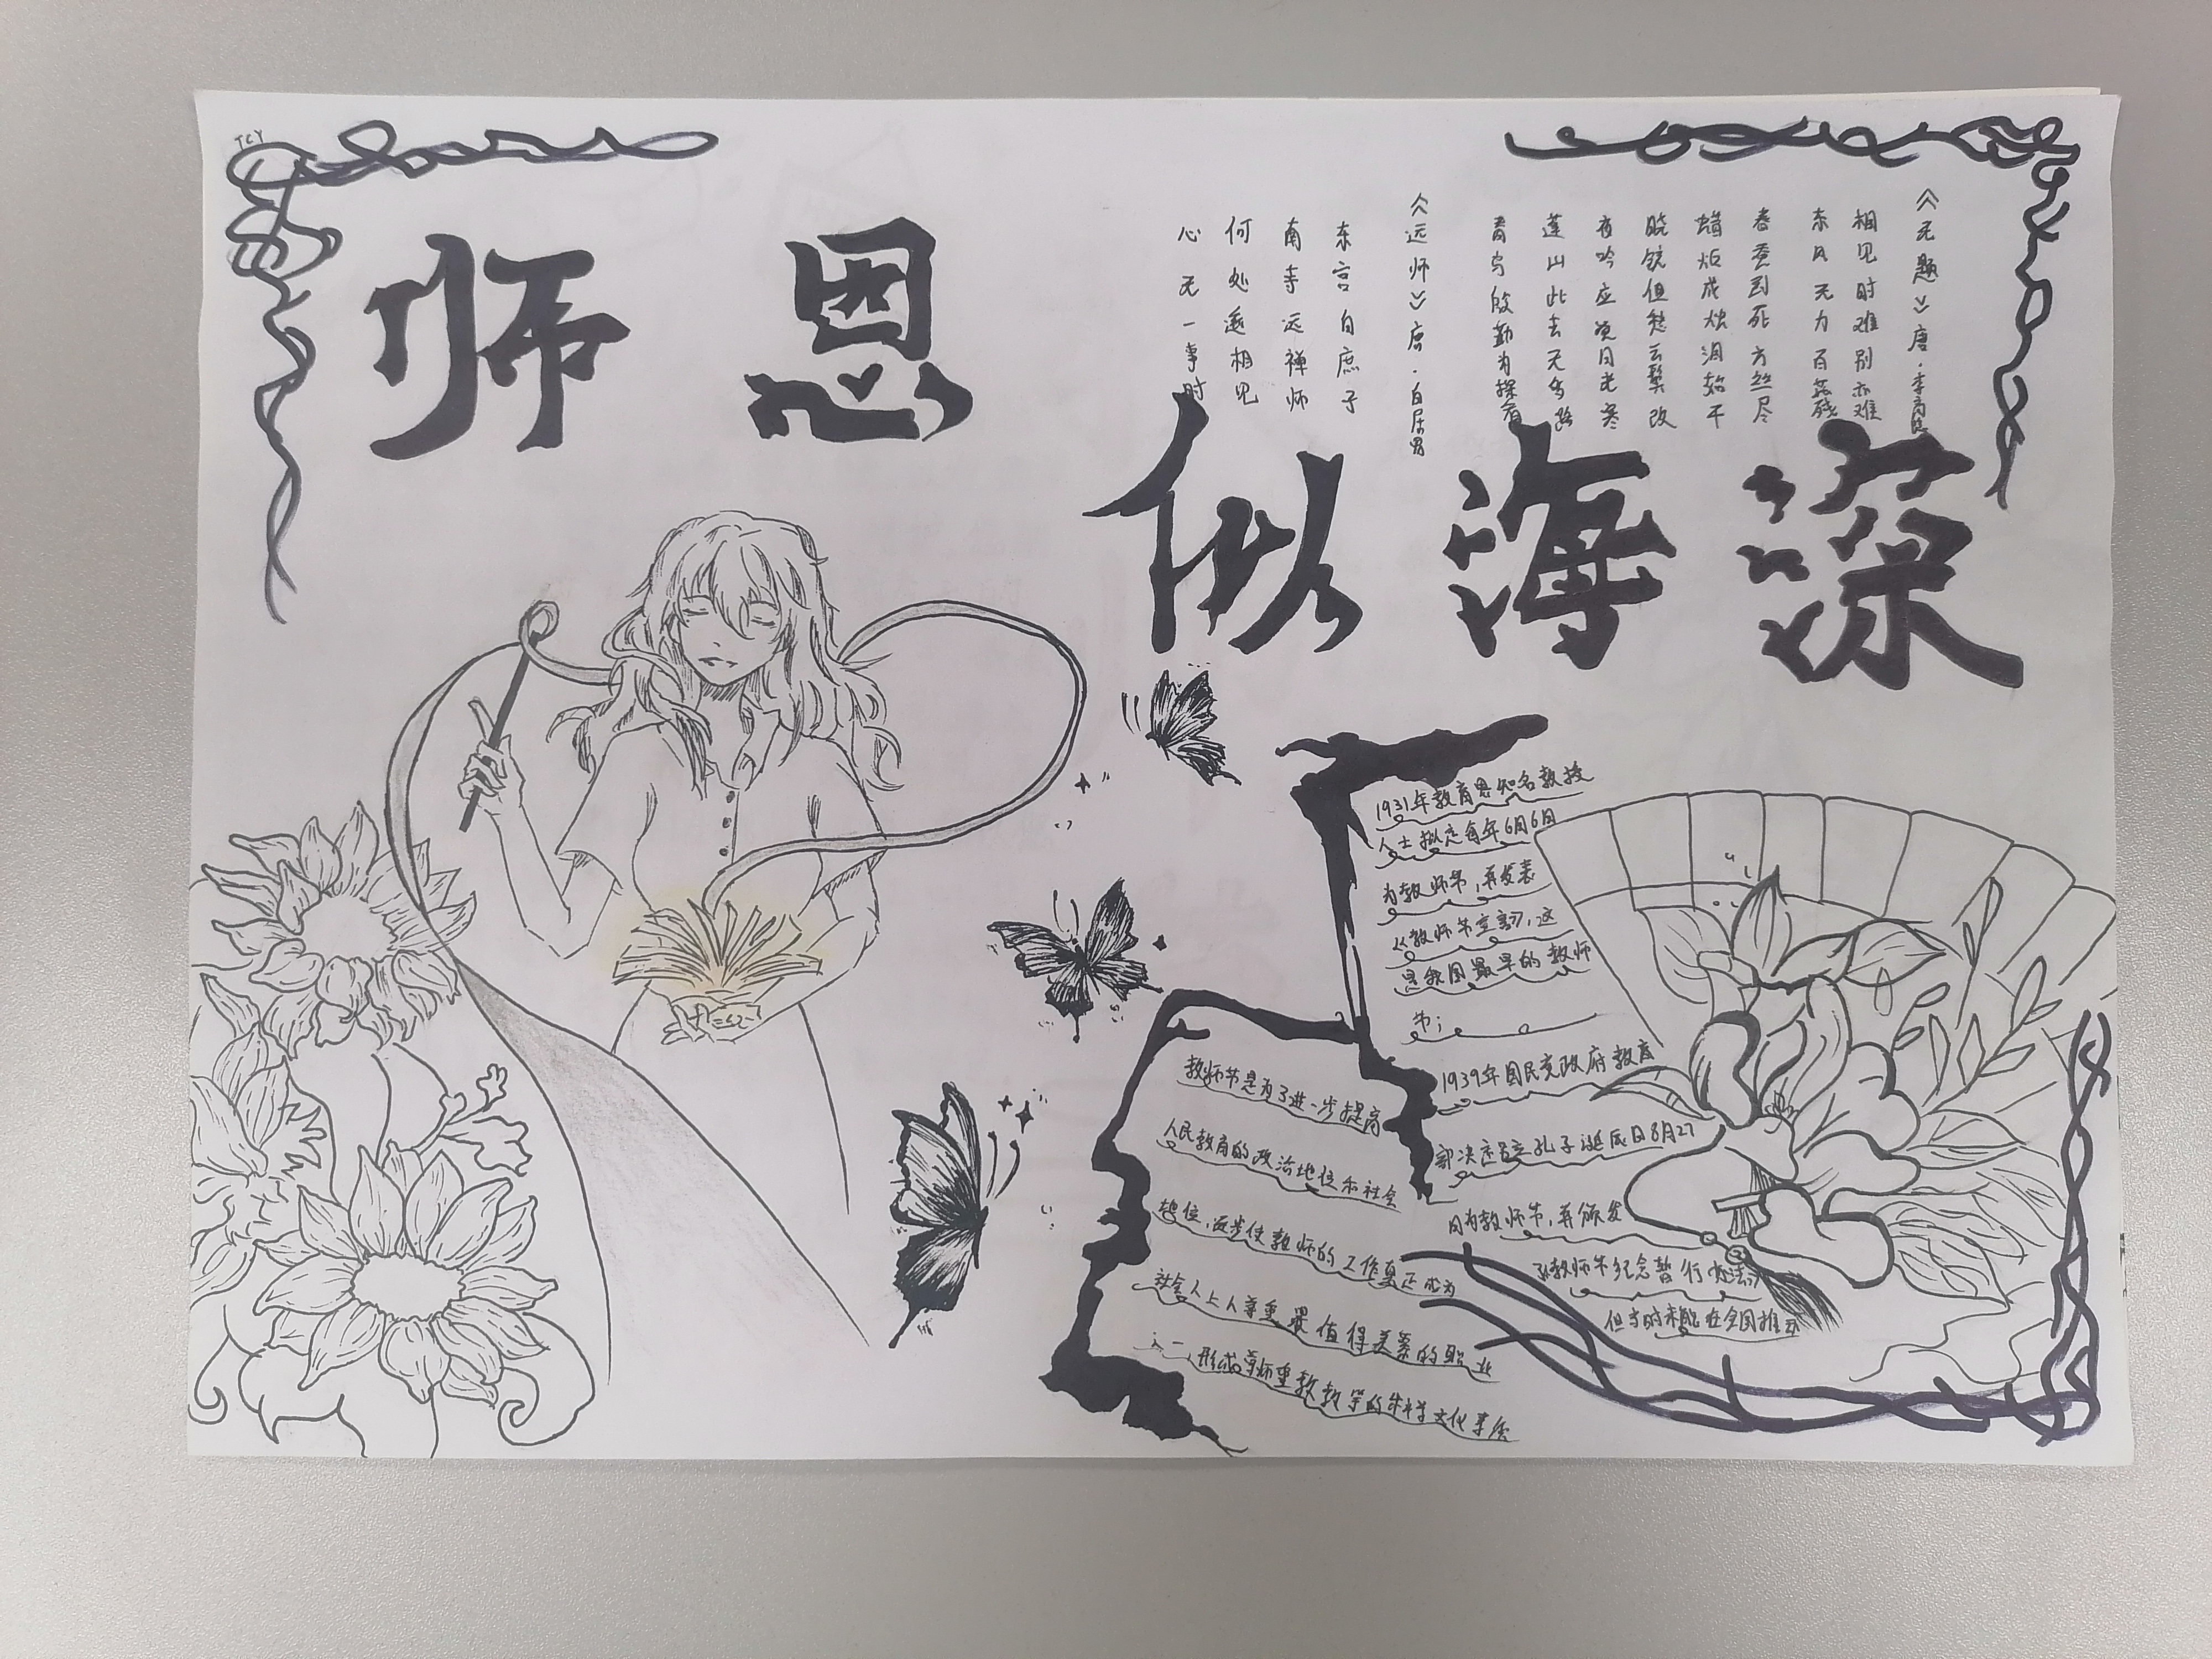 TCY
师恩
似海深
《无题》唐·李商隐
相见时难别亦难
东风无力百花残
春蚕到死方丝尽
蜡炬成灰泪始干
晓镜但愁云鬓改
夜吟应觉月光寒
蓬山此去无多路
青鸟殷勤为探看
《远师》唐·白居易
东宫白庶子
南寺远禅师
何处遥相见
心无一事时
1931年教育界知名教授
人士拟定每年6月6日
为教师节,再发表
《教师节宣言》,这
是我国最早的教师
节;
1939年国民党政府教育
部决定另立孔子诞辰日8月27
日为教师节,再颁发
《教师节纪念暂行办法》
但当时未能在全国推
教师节是为了进一步提高
人民教育的政治地位和社会
地位,逐步使教师的工作真正成为
社会人上人尊重最值得羡慕的职业
形成尊师重教